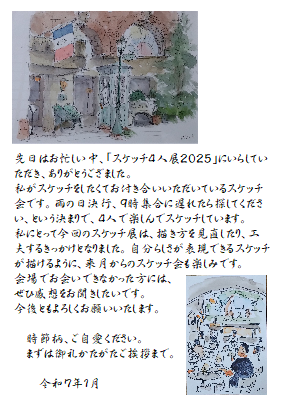 先日はお忙しい中、「スケッチ4人展2025」にいらしてい
ただき、ありがとうございました。
私がスケッチをしたくてお付き合いいただいているスケッチ
会です。雨の日決行、9時集合に遅れたら探してくださ
い、という決まりで、4人で楽しんでスケッチしています。
私にとって今回のスケッチ展は、描き方を見直したり、工
夫するきっかけとなりました。自分らしさが表現できるスケッチ
が描けるように、来月からのスケッチ会も楽しみです。
会場でお会いできなかった方には、
ぜひ感想をお聞きしたいです。
今後ともよろしくお願いいたします。
時節柄、ご自愛ください。
まずは御礼かたがたご挨拶まで。
令和7年1月